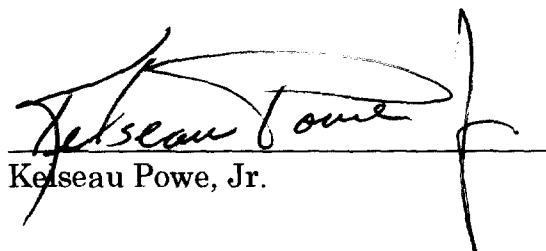 Kelseau Powe Jr
Kelseau Powe, Jr.